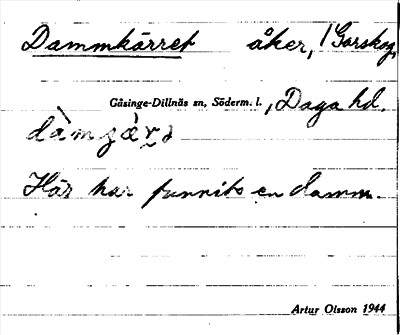 Dammkärret åker, / Garskog,
Gåsinge-Dillnäs sn, Söderm. l., Daga hd.
Här har funnits en damm.
Artur Olsson 1944